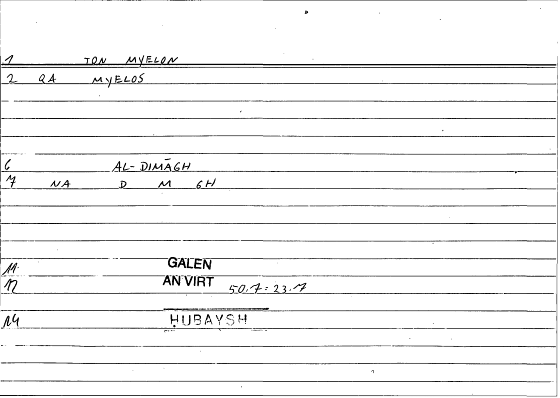 1 TON MYELON
2 QA MYELOS
6 AL-DIMĀGH
7 NA D M GH
11 GALEN
12 AN VIRT 50.7 : 23.7
14 ḤUBAYSH